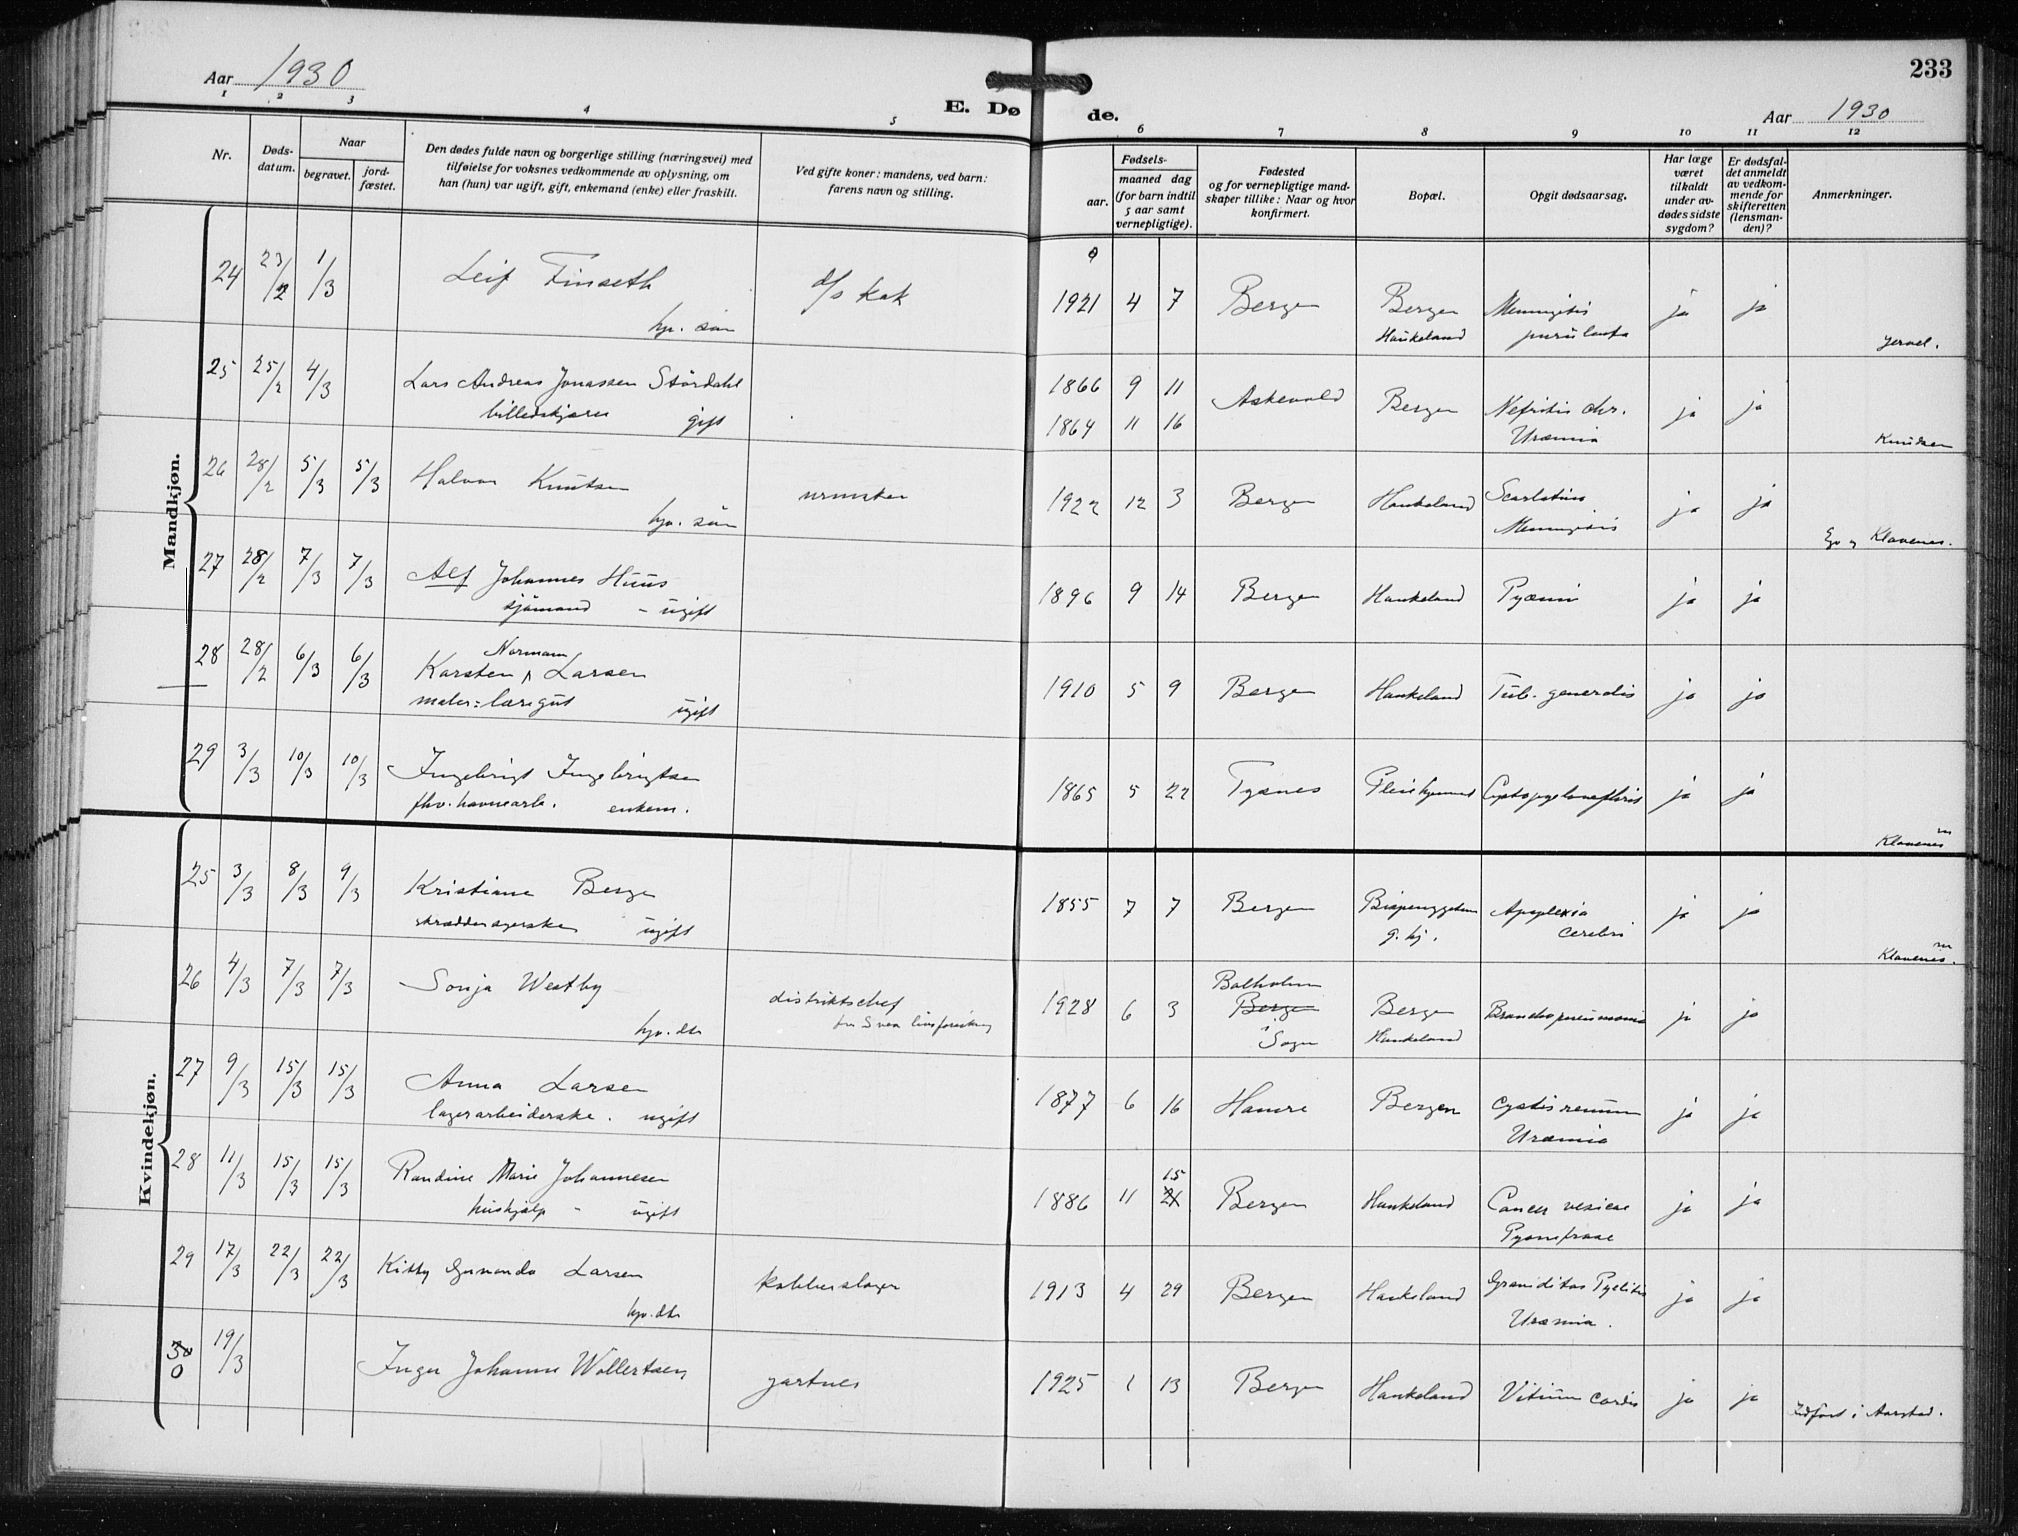 Aar 1930
E. Døde.
233
Aar 1930
1 2 3 4 5 6 7 8 9 10 11 12
Nr.
Døds-
datum.
Naar
begravet.
jord-
fæstet.
Den dødes fulde navn og borgerlige stilling (næringsvei) med
tilføielse for voksnes vedkommende av oplysning, om
han (hun) var ugift, gift, enkemand (enke) eller fraskilt.
Ved gifte koner: mandens, ved barn:
farens navn og stilling.
Fødsels-
aar.
maaned dag
(for barn indtil
5 aar samt
vernepligtige).
Fødested
og for vernepligtige mand-
skaper tillike: Naar og hvor
konfirmert.
Bopæl.
Opgit dødsaarsag.
Har læge
været
tilkaldt
under av-
dødes sidste
sygdom?
Er dødsfal-
det anmeldt
av vedkom-
mende for
skifteretten
(lensman-
den)?
Anmerkninger.
Mandkjøn.
24 23/2 1/3 Leif Finseth d/s kok 1921 4 7 Bergen Bergen Meningitis ja ja
hp. søn Haukeland purulenta
25 25/2 4/3 Lars Andreas Jonassen Stördahl 1866 9 11 Askevold Bergen Nefritis chr. ja ja
billedskjærer gift 1864 11 16 Uræmia Knudsen
26 28/2 5/3 5/3 Halvor Knutsen urmaker 1922 12 3 Bergen Haukeland Scarlatina ja ja
hp. søn Meningitis Klavenes.
27 28/2 7/3 7/3 Alf Johannes Huus 1896 9 14 Bergen Haukeland Pyæmi ja ja
sjömand - ugift
28 28/2 6/3 6/3 Karsten Normann Larsen 1910 5 9 Bergen Haukeland Tub. generalis ja ja
maler=læregut ugift
29 3/3 10/3 10/3 Ingebrigt Ingebrigtsen 1865 5 22 Tysnes Pleiehjemmet ja ja
fhv. havnearb. enkem. Klavenes
Kvindekjøn.
25 3/3 8/3 9/3 Kristiane Berge 1855 7 7 Bergen g. hj. Apoplexia ja ja
ugift cerebri Klavenes.
26 4/3 7/3 7/3 Sonja Westby distriktschef 1928 6 3 Balholm Bergen Bergen Bronchopneumonia ja ja
hp. dtr for Svea livsforsikring i Sogn Haukeland
27 9/3 15/3 15/3 Anna Larsen 1877 6 16 Hamre Bergen Cystis renum ja ja
lagerarbeiderske. ugift Uræmia
28 11/3 15/3 15/3 Randine Marie Johannesen 1886 11 15 21 Bergen Haukeland Cancer vesicae ja ja
hushjælp - ugift Pyonefrose
29 17/3 22/3 22/3 Kitty Larsen kobberslager 1913 4 29 Bergen Haukeland Graviditas Pyelitis ja ja
hp. dtr Uræmia.
30 0 19/3 Inger Johanne Wollertsen gartner 1925 1 13 Bergen Haukeland Vitium cordis ja ja
Indfört i Aarstad.